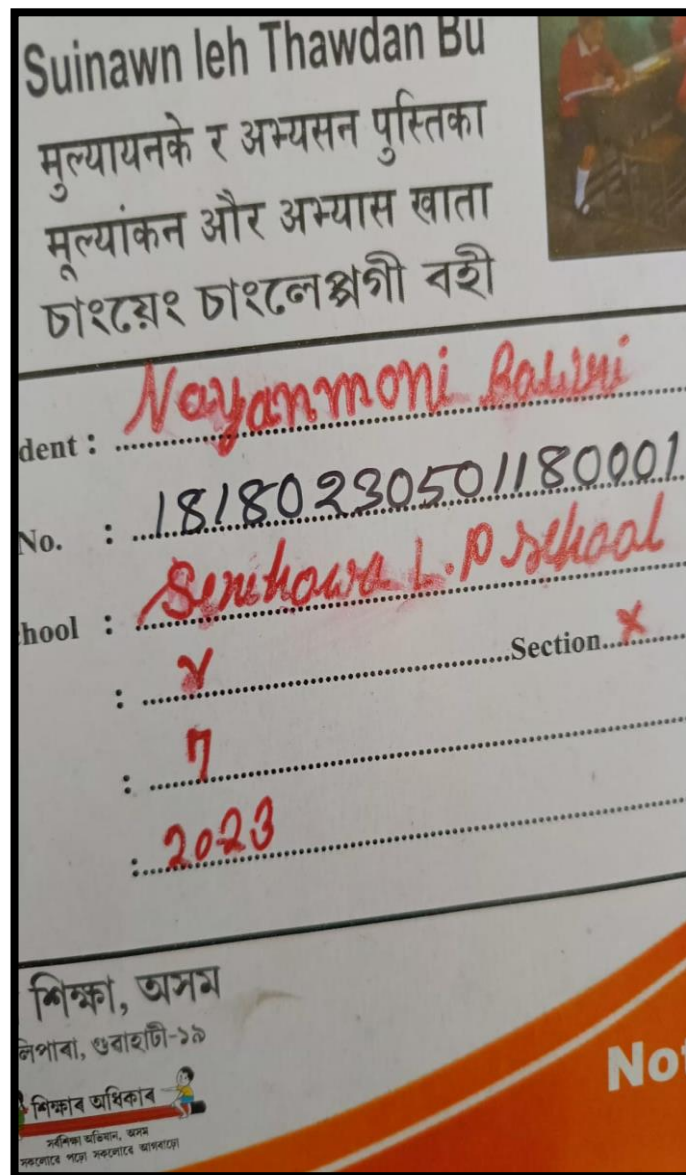 Suinawn leh Thawdan Bu
मुल्यायनके र अभ्यसन पुस्तिका
मूल्यांकन और अभ्यास खाता
চাংয়েং চাংলেপ্পগী বহী
dent : Nayanmoni Bauri
No. : 18180230501180001
hool : Senchowa L.P School
: V Section X
: 7
: 2023
শিক্ষা, অসম
লিপাৰা, গুৱাহাটী-১৯
শিক্ষাৰ অধিকাৰ
সৰ্বশিক্ষা অভিযান, অসম
সকলোৱে পঢ়ো সকলোৱে আগবাঢ়ো
Not